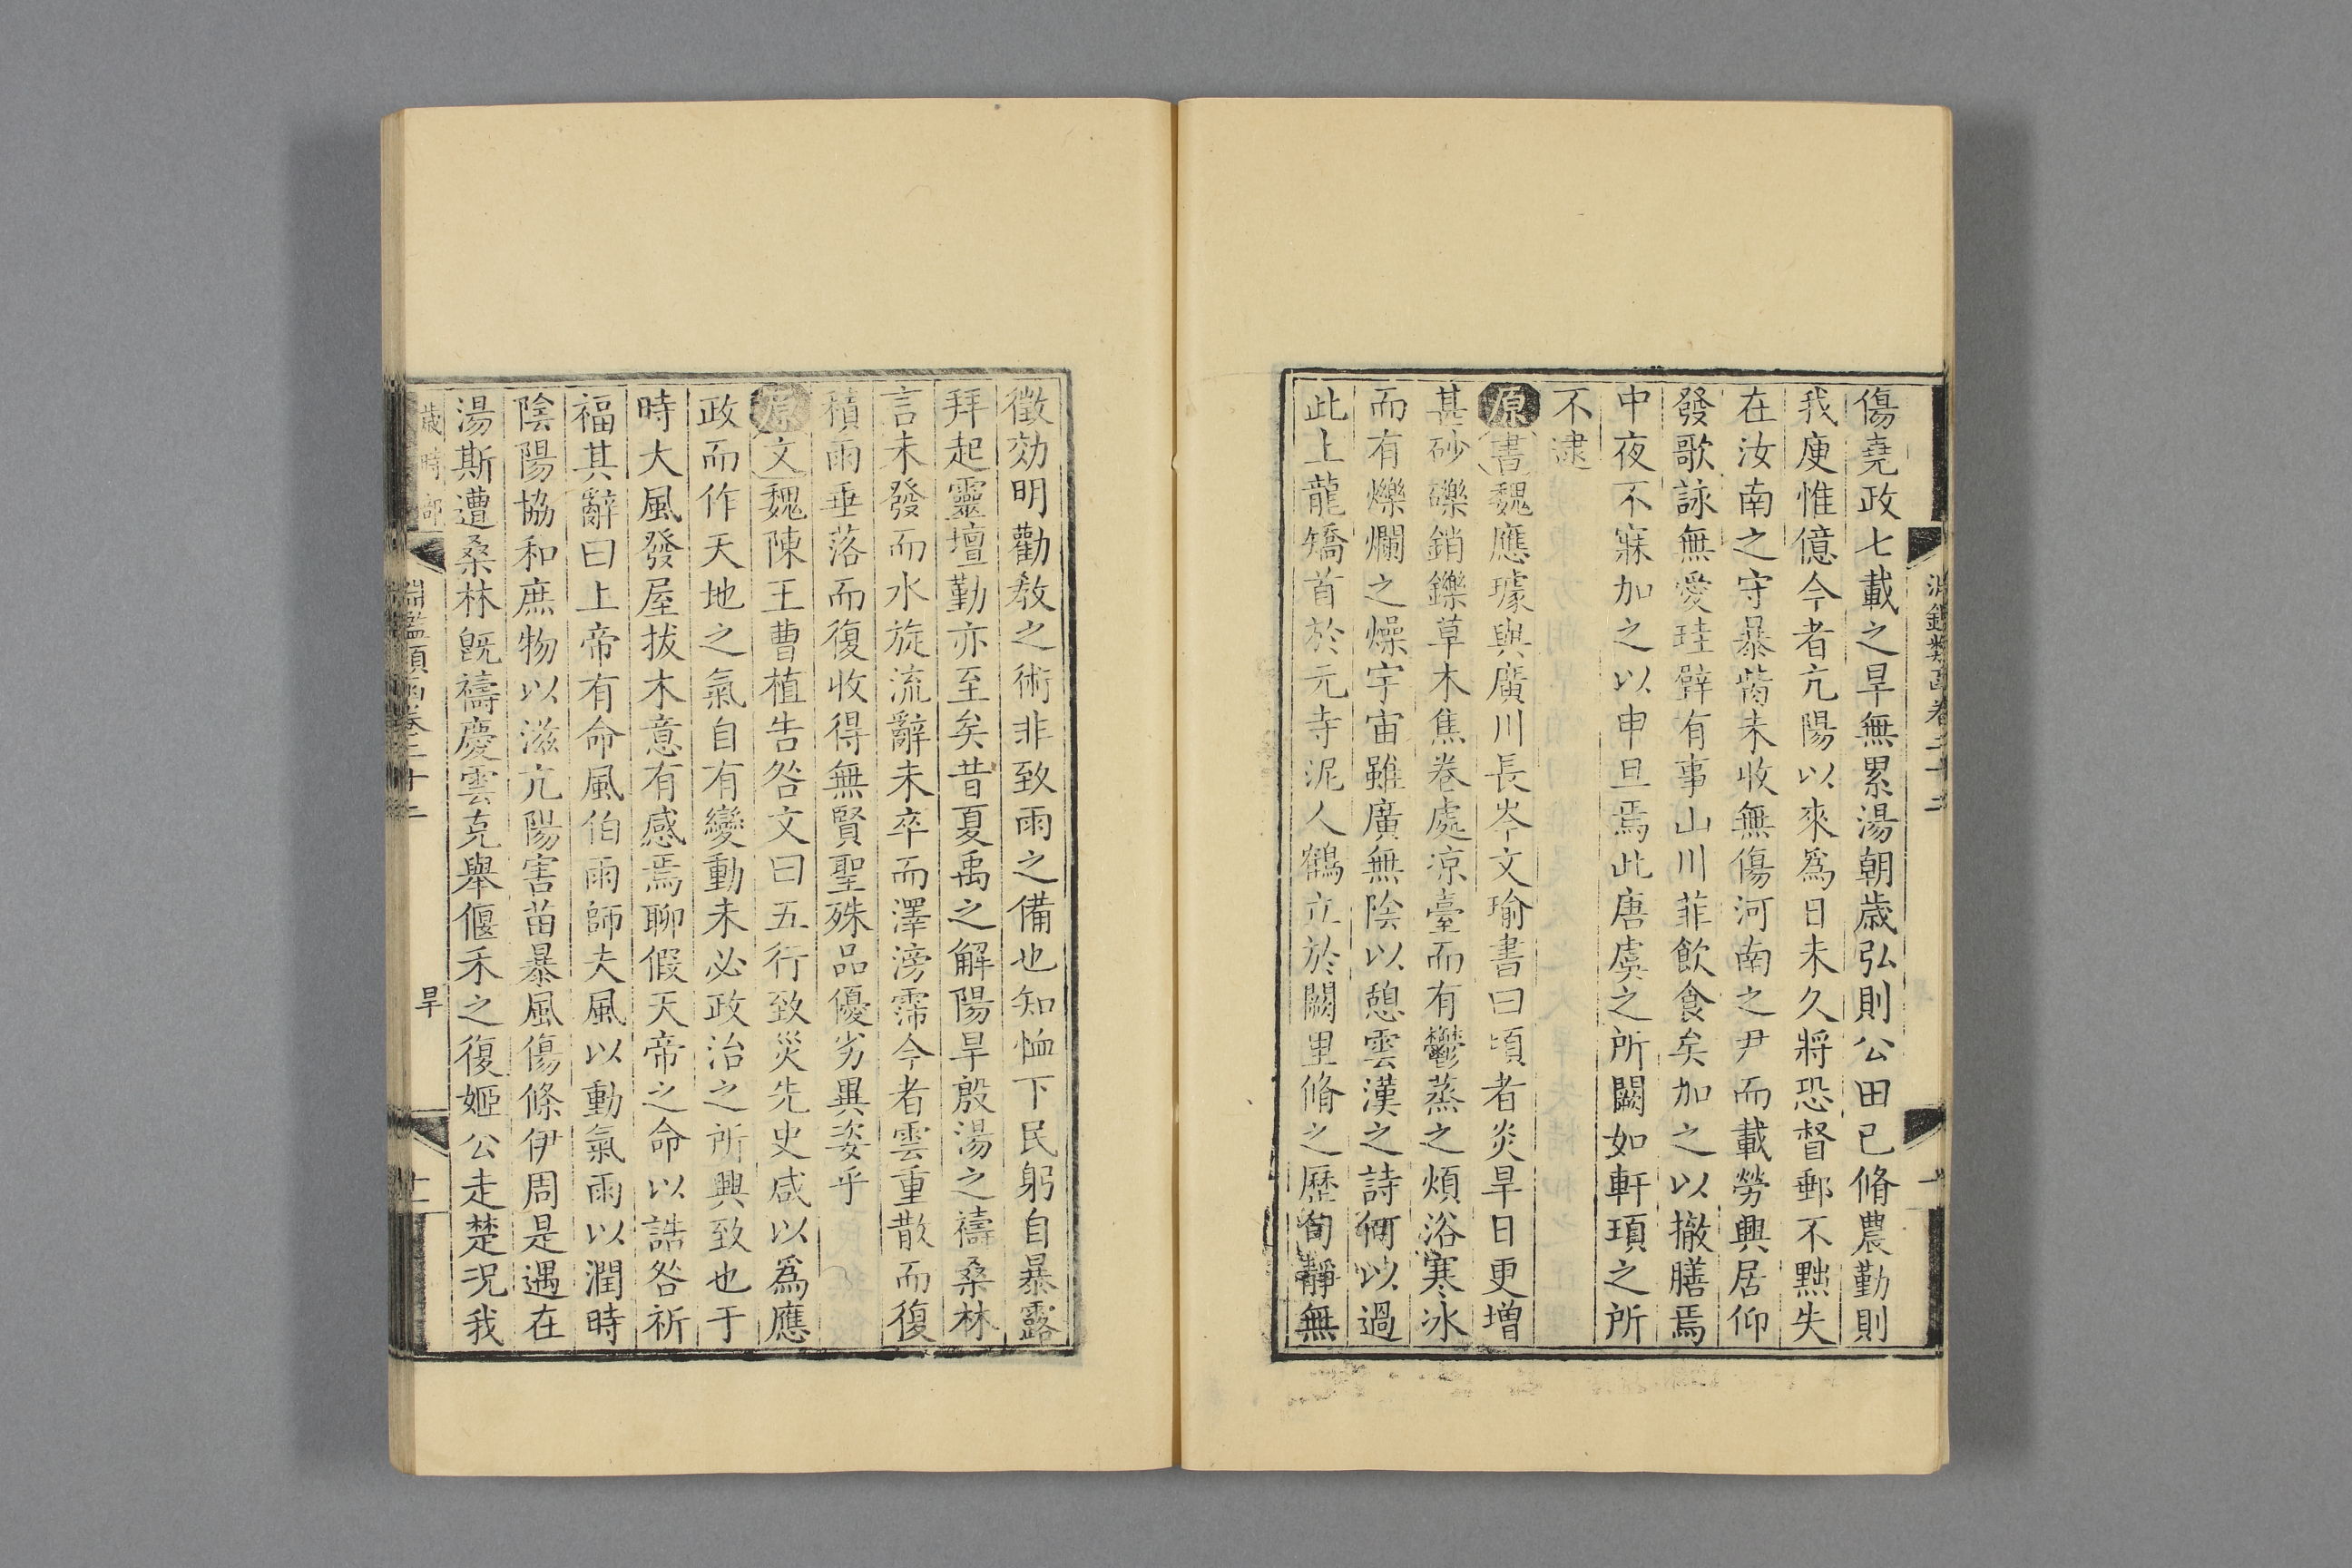 傷堯政七載之旱無累湯朝歲弘則公田已脩農勤則
我庾惟億今者亢陽以來爲日未久將恐督郵不黜失
在汝南之守暴胔未收無傷河南之尹而載勞興居仰
發歌詠無愛珪璧有事山川菲飲食矣加之以撤膳焉
中夜不寐加之以申旦焉此唐虞之所闕如軒頊之所
不逮
原書魏應璩與廣川長岑文瑜書曰頃者炎旱日更增
甚砂礫銷鑠草木焦卷處凉臺而有鬱蒸之煩浴寒冰
而有爍爛之燥宇宙雖廣無陰以憩雲漢之詩何以過
此上龍矯首於元寺泥人鶴立於闕里脩之歷旬靜無
徵効明勸教之術非致雨之備也知恤下民躬自暴露
拜起靈壇勤亦至矣昔夏禹之解陽旱殷湯之禱桑林
言未發而水旋流辭未卒而澤滂霈今者雲重散而復
積雨垂落而復收得無賢聖殊品優劣異姿乎
原文魏陳王曹植告咎文曰五行致災先史咸以爲應
政而作天地之氣自有變動未必政治之所興致也于
時大風發屋拔木意有感焉聊假天帝之命以誥咎祈
福其辭曰上帝有命風伯雨師夫風以動氣雨以潤時
陰陽協和庶物以滋亢陽害苗暴風傷條伊周是遇在
湯斯遭桑林旣禱慶雲克舉偃禾之復姬公走楚況我
歲時部 淵鑑類函卷二十二 旱 十一